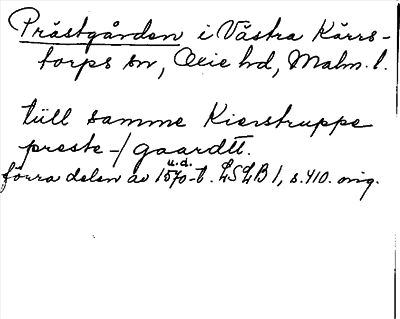 Prästgården i Västra Kärrs-
torps sn, Oxie hd, Malm. l.
tiill samme Kierstruppe
preste-/gaardtt.
u.d.
förra delen av 1570-t. LSLB 1, s. 410. orig.